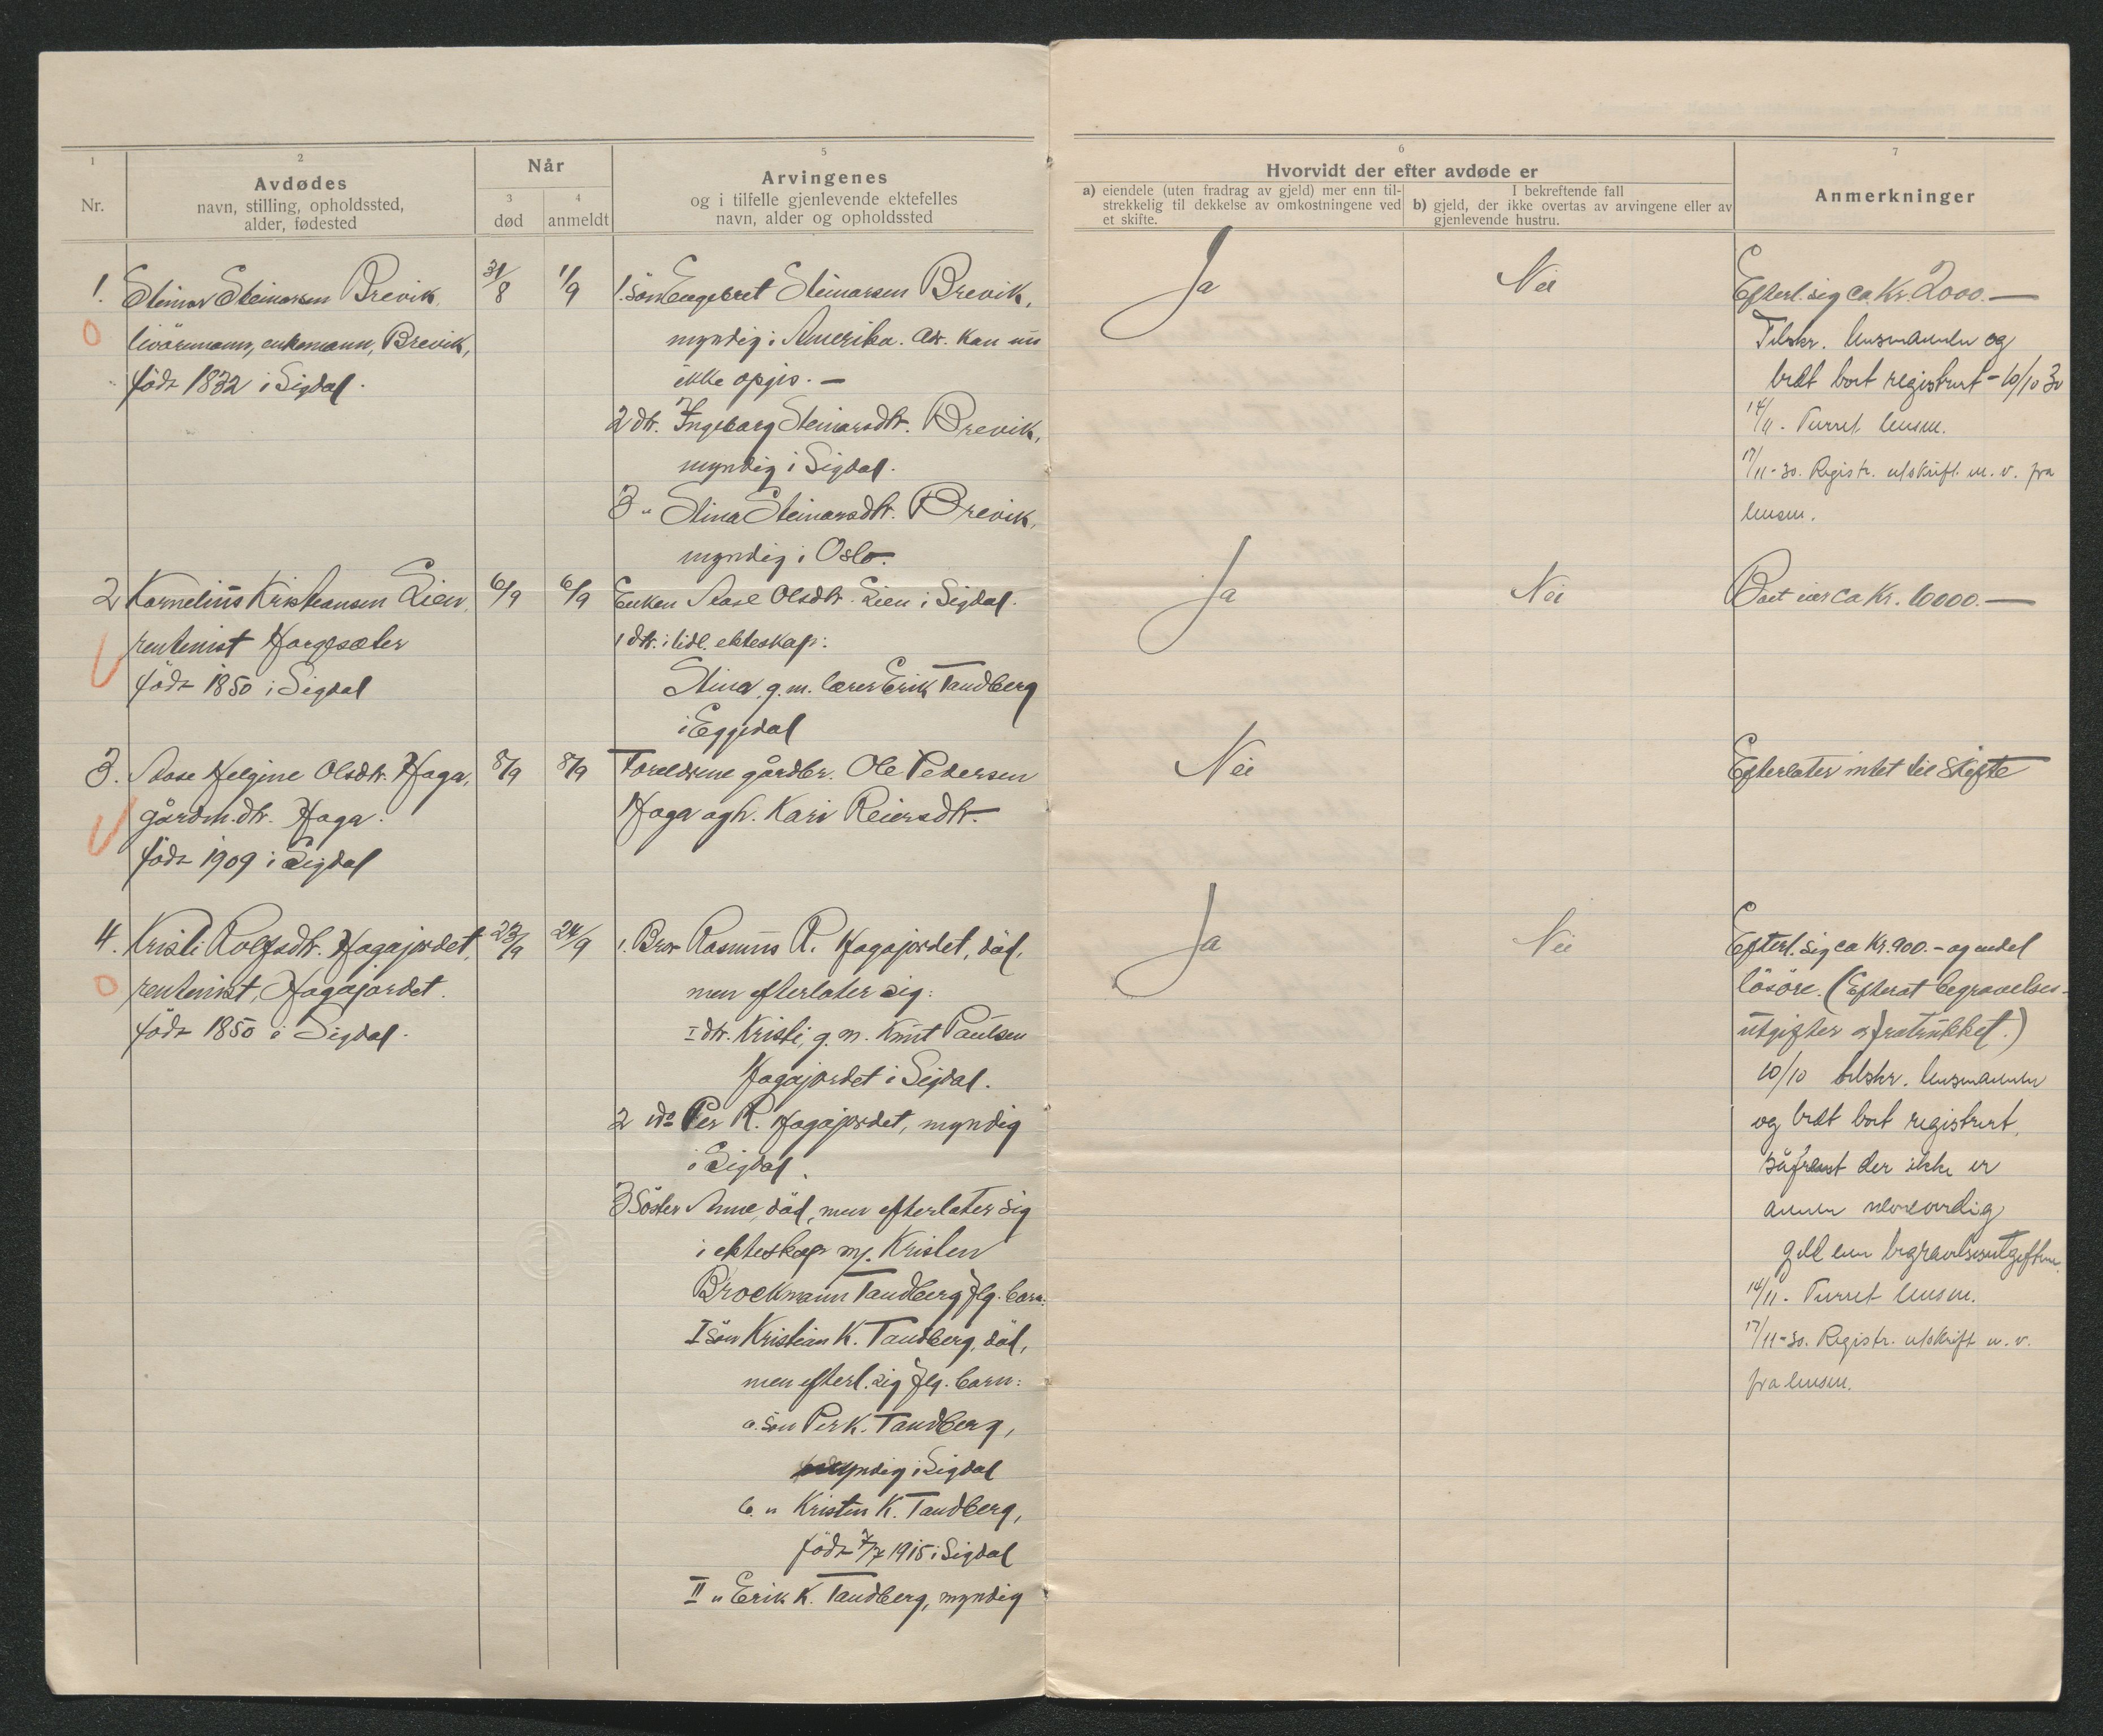 1
Nr.
2
Avdødes
navn, stilling, opholdssted,
alder, fødested
Når
3
død
4
anmeldt
5
Arvingenes
og i tilfelle gjenlevende ektefelles
navn, alder og opholdssted
6
Hvorvidt der efter avdøde er
a) eiendele (uten fradrag av gjeld) mer enn til-
strekkelig til dekkelse av omkostningene ved
et skifte.
I bekreftende fall
b) gjeld, der ikke overtas av arvingene eller av
gjenlevende hustru.
7
Anmerkninger
1. Steinar Steinarsen Brevik,
livörmann, enkemann, Brevik,
född 1832 i Sigdal.
31/8
1/9
1. sön Engebret Steinarsen Brevik,
myndig i Amerika. Adr. kan nu
ikke opgis. —
2 dtr. Ingeborg Steinarsdtr. Brevik,
myndig i Sigdal.
3 " Stina Steinarsdtr. Brevik,
myndig i Oslo.
Ja
Nei
Efterl. sig ca. Kr. 2000.—
Tilskr. lensmannen og
bedt boet registrert - 10/10 30
14/11. Purret lensm.
17/11-30. Registr. utskrift m. v. fra
lensm.
2 Kornelius Kristiansen Lien,
rentenist Horgesæter
född 1850 i Sigdal
6/9
6/9
Enken Aase Olsdtr. Lien i Sigdal.
1 dtr. i tidl. ekteskap:
Stina, g. m. lærer Erik Tandberg
i Eggedal
Ja
Nei
Boet eier ca Kr. 10000.—
3. Aase Helgine Olsdtr. Haga,
gårdm. dtr. Haga.
född 1909 i Sigdal
8/9
8/9
Foreldrene gårdbr. Ole Pedersen
Haga og h. Kari Reiersdtr.
Nei
Efterlater intet til skifte
4. Kristi Rolfsdtr. Hagajordet,
rentenist, Hagajordet.
född 1850 i Sigdal.
23/9
24/9
1. Bror Rasmus R. Hagajordet, död,
men efterlater sig:
I dtr. Kristi, g. m. Knut Paulsen
Hagajordet i Sigdal.
2 do Per R. Hagajordet, myndig
i Sigdal.
3 Söster Anne, död, men efterlater sig
i ekteskap m/. Kristen
Brockmann Tandberg flg. barn:
I sön Kristian K. Tandberg, död,
men efterl. sig flg. barn:
a. sön Per K. Tandberg,
myndig i Sigdal
b. " Kristen K. Tandberg,
född 7/7 1915 i Sigdal
II " Erik K. Tandberg, myndig
Ja
Nei
Efterl. sig ca Kr. 900.- og endel
lösöre. (Efterat begravelses-
utgifter er fratrukket.)
10/10 tilskr. lensmannen
og bedt boet registrert,
såfremt der ikke er
annen nevneverdig
gjeld enn begravelsesutgiftene.
14/11. Purret lensm.
17/11-30. Registr. utskrift m. v.
fra lensm.